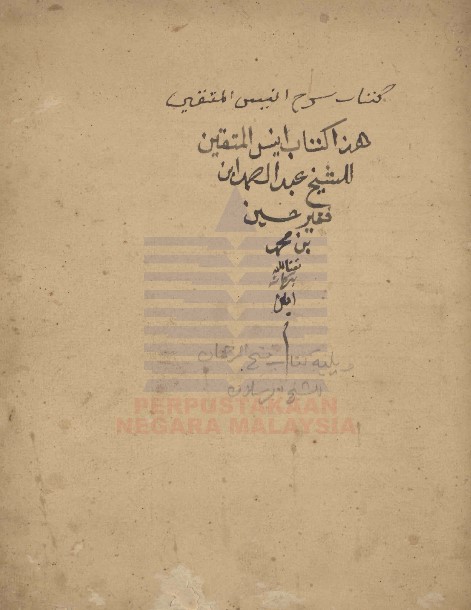 كتاب سراج انيس المتقين
هذا كتاب انيس المتقين
للشيخ عبد الصمد ابن
فقير حسين
بن محمد
نفعنا الله
امين
ويليه كتاب فتح الرحمان
الشيخ
PERPUSTAKAAN
NEGARA MALAYSIA